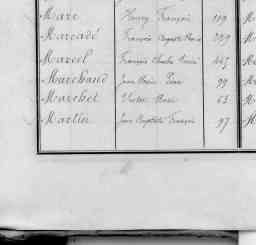 Marc Henry François 119
Marcadé François Auguste 209
Marcel François Charles 445
Marchand Jean Pierre 99
Marchel Victor 63
Martin Jean Baptiste François 97